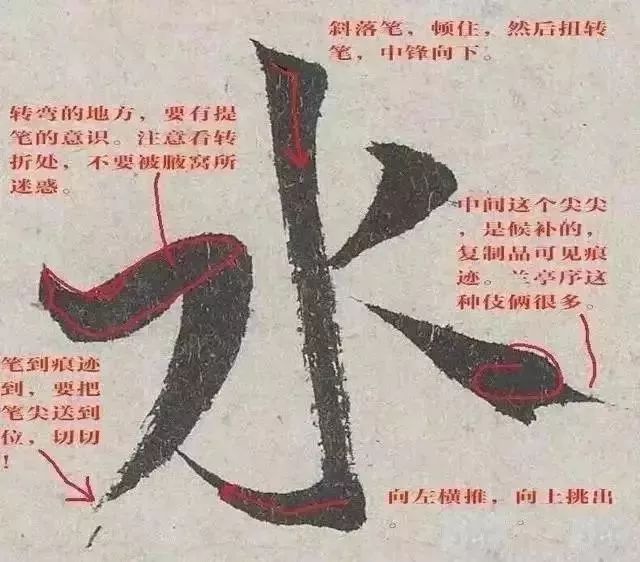 斜落笔，顿住，然后扭转
笔，中锋向下。
转弯的地方，要有提
笔的意识。注意看转
折处，不要被腋窝所
迷惑。
中间这个尖尖
，是候补的，
复制品可见痕
迹。兰亭序这
种伎俩很多。
水
笔到痕迹
到，要把
笔尖送到
位，切切
！
向左横推，向上挑出
。